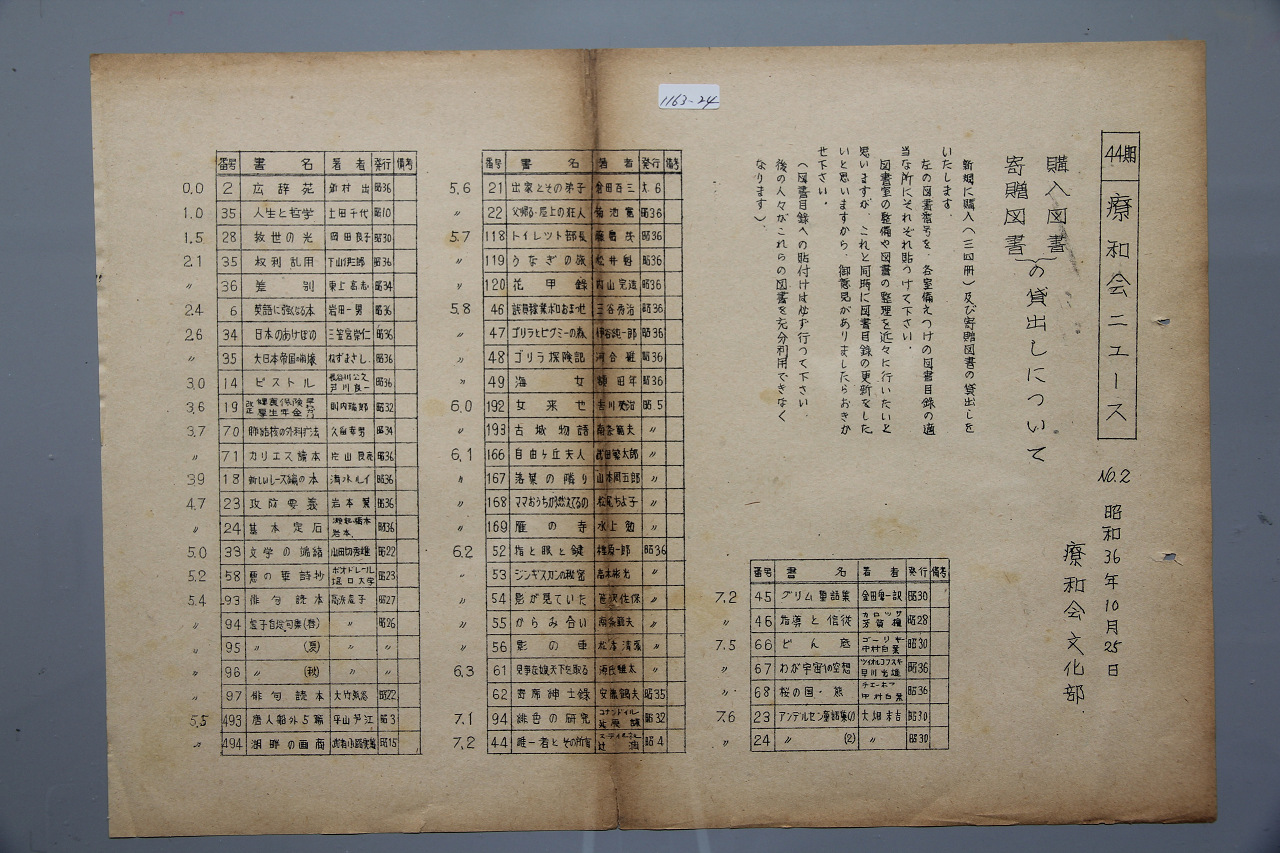 1163-24
44期 療和会ニュース
No.2 昭和36年10月25日
療和会文化部
購入図書
寄贈図書
の貸出しについて
新規に購入(三四冊)及び寄贈図書の貸出しを
いたします.
左の図書番号を、各室備えつけの図書目録の適
当な所にそれぞれ貼つけて下さい.
図書室の整備や図書の整理を近々に行いたいと
思いますが、これと同時に図書目録の更新をした
いと思いますから、御意見がありましたらおきか
せ下さい.
(図書目録への貼付けは必ず行つて下さい.
後の人々がこれらの図書を充分利用できなく
なります).
番号 書名 著者 発行 備考
0.0 2 広辞苑 新村出 昭36
1.0 35 人生と哲学 土田千代 昭10
1.5 28 救世の光 岡田良子 昭30
2.1 35 权利乱用 下山 昭36
〃 36 差別 東上高志 昭34
2.4 6 英語に強くなる本 岩田一男 昭36
2.6 34 日本のあけぼの 三笠宮崇仁 昭36
〃 35 大日本帝国の崩壊 ねずまさし. 昭36
3.0 14 ピストル 長谷川公之 芦川良一 昭36
3.6 19 改正 健康保険 厚生年金 昭32
3.7 70 肺結核の外科疗法 久留幸男 昭34
〃 71 カリエス讀本 片山良亮 昭36
3.9 18 新しいレース編の本 清水ルイ 昭36
4.7 23 攻防要義 岩本薫 昭36
〃 24 基本定石 瀬越・橋本 岩本. 昭36
5.0 33 文学の端緒 山田切秀雄 昭22
5.2 58 悪の華詩抄 ボオドレール 堀口大学 昭23
5.4 93 俳句読本 高浜虚子 昭27
〃 94 虚子自選句集(春) 〃 昭26
〃 95 〃 (夏) 〃 〃
〃 96 〃 (秋) 〃 〃
〃 97 俳句読本 大竹 昭22
5.5 493 唐人船外5篇 平山芦江 昭3
〃 494 湖畔の画商 武者小路実篤 昭15
番号 書名 著者 発行 備考
5.6 21 出家とその弟子 倉田百三 大.6
〃 22 父帰る・屋上の狂人 菊池寛 昭36
5.7 118 トイレット部長 藤島茂 昭36
〃 119 うなぎの旅 松井魁 昭36
〃 120 花甲録 内山完造 昭36
5.8 46 誤訳稼業ボロのおまかせ 三谷秀治 昭36
〃 47 ゴリラとピグミーの森 伊谷純一郎 昭36
〃 48 ゴリラ探険記 河合雅 昭36
〃 49 海女 額田年 昭36
6.0 192 女来也 吉川英治 昭.5
〃 193 古城物語 南条範夫 〃
6.1 166 自由ヶ丘夫人 武田繁太郎 〃
〃 167 落葉の隣り 山本周五郎 〃
〃 168 ママおうちが燃えてるの 松尾ちよ子 〃
〃 169 雁の寺 水上勉 〃
6.2 52 指と眼と鍵 椎原一郎 昭36
〃 53 ジンギスカンの秘密 高木彬光 〃
〃 54 影が見ていた 笹沢佐保 〃
〃 55 からみ合い 南条範夫 〃
〃 56 影の車 松本清張 〃
6.3 61 見事な娘天下を取る 源氏鶏太 〃
62 寄席紳士録 安藤鶴夫 昭35
7.1 94 緋色の研究 コナンドイル 延原謙 昭32
7.2 44 唯一者とその所有 スティルネル 辻潤 昭4
番号 書名 著者 発行 備考
7.2 45 グリム童話集 金田鬼一訳 昭30
〃 46 指導と信従 カロッサ 芳賀檀 昭28
7.5 66 どん底 ゴーリキー 中村白葉 昭30
〃 67 わが宇宙への空想 ツイオルコフスキー 早川光雄 昭36
〃 68 桜の国・熊 チエーホフ 中村白葉 昭36
7.6 23 アンデルセン童話集(1) 大畑末吉 昭30
〃 24 〃 (2) 〃 昭30